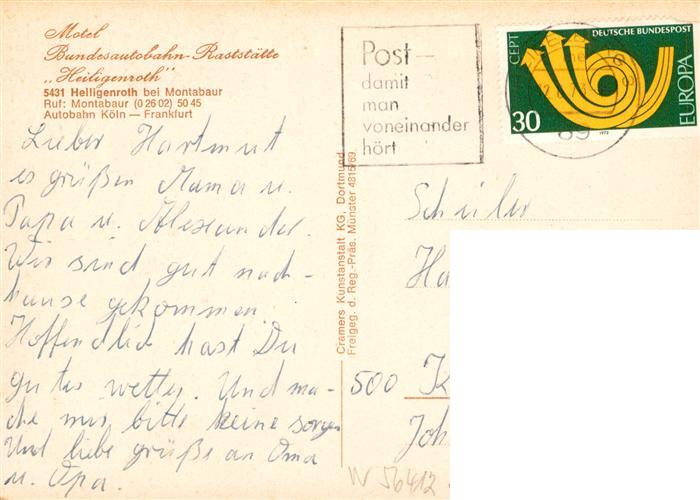 Motel
Bundesautobahn-Raststätte
„Heiligenroth"
5431 Heiligenroth bei Montabaur
Ruf: Montabaur (0 26 02) 50 45
Autobahn Köln — Frankfurt
Lieber Hartmut
es grüßen Mama u.
Papa u. Alexander.
Wir sind gut nach-
hause gekommen.
Hoffendlich hast Du
gutes wetter. Und ma-
che mir bitte keine sorgen
Und liebe grüße an Oma
u. Opa.
Cramers Kunstanstalt KG, Dortmund
Freigeg. d. Reg.-Präs. Münster 4815/69
Post —
damit
man
voneinander
hört
DEUTSCHE BUNDESPOST
CEPT
EUROPA
30
1973
89
Schüler
Ha
500 K
Joh
W 56412